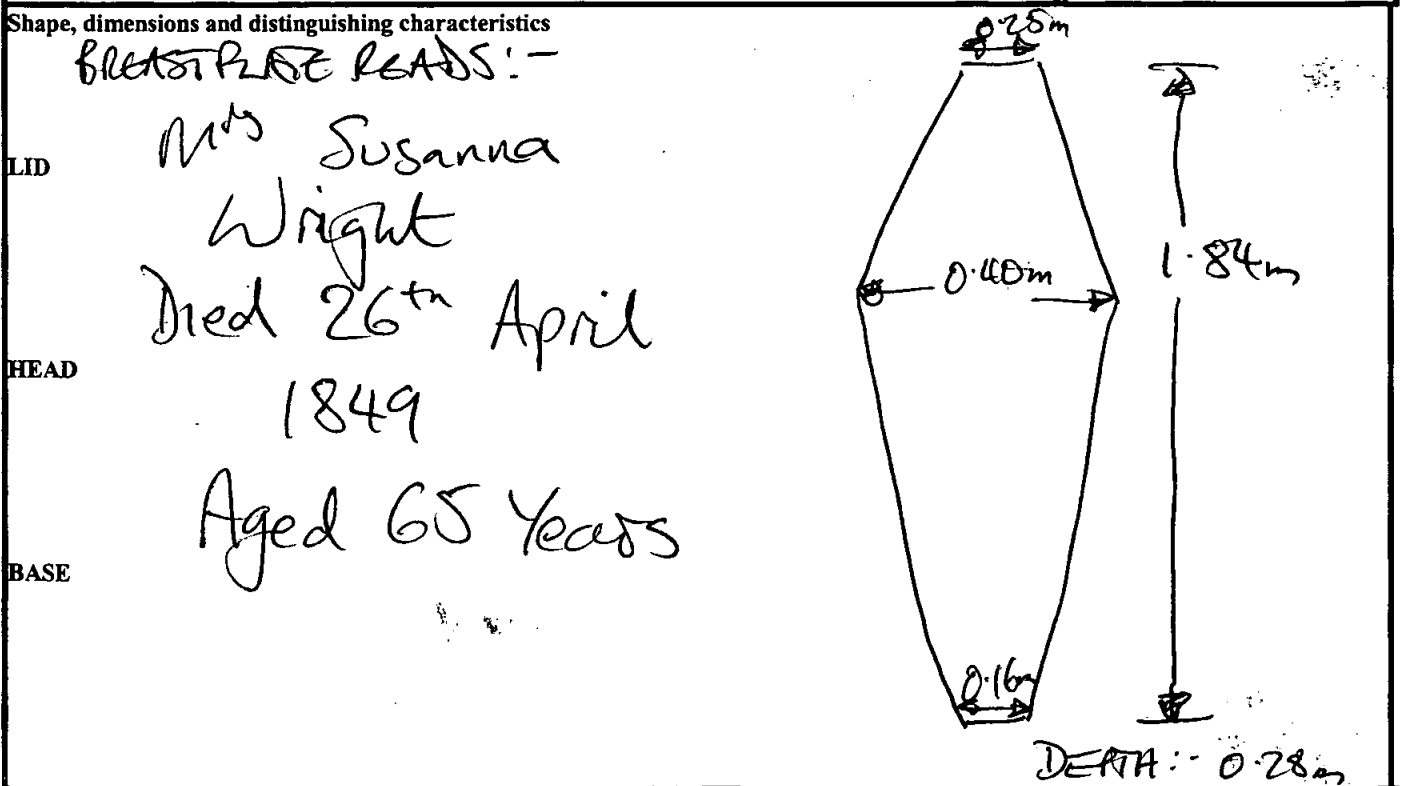 Shape, dimensions and distinguishing characteristics
BREASTPLATE READS:-
Mrs Susanna
LID
Wright
Died 26th April
HEAD
1849
Aged 65 Years
BASE
0.25m
0.40m
1.84m
0.16m
DEPTH:- 0.28m